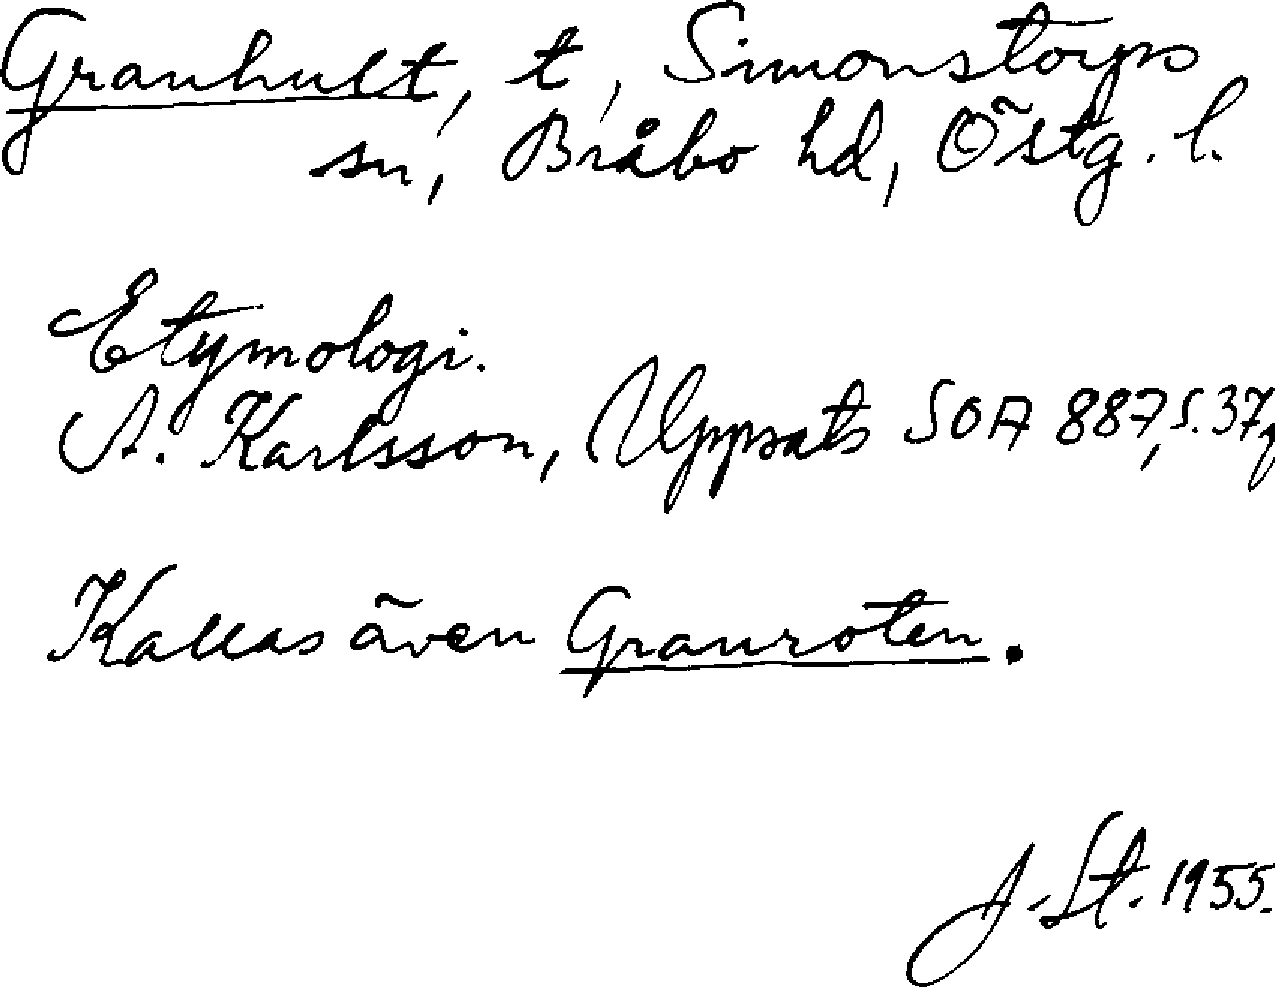 Granhult, t, Simonstorps
sn, Bråbo hd, Östg. l.
Etymologi.
A. Karlsson, Uppsats SOA 887, s. 37,
Kallas även Granroten.
J. St. 1955.